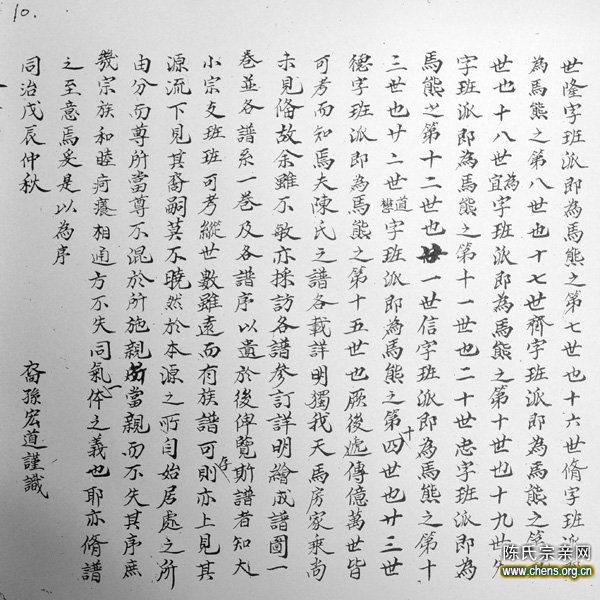 10.
世隆字班派即為馬熊之第七世也十六世脩字班派
為馬熊之第八世也十七世齊字班派即為馬熊之第
世也十八世宜為字班派即為馬熊之第十世也十九世
字班派即為馬熊之第十一世也二十世忠字班派即為
馬熊之第十二世也廿一世信字班派即為馬熊之第十
三世也廿二世道字班派即為馬熊之第十四世也廿三世
德字班派即為馬熊之第十五世也厥後遞傳億萬世皆
可考而知焉夫陳氏之譜各載詳明獨我天馬房家乘尚
未見俻故余雖不敏亦採訪各譜參訂詳明繪成譜圖一
卷並各譜系一卷及各譜序以遺於後俾覽斯譜者知大
小宗支班班可考縱世數雖遠而有族譜可存則亦上見其
源流下見其裔嗣莫不曉然於本源之所自始居處之所
由分而尊所當尊不混於所施親所當親而不失其序庶
幾宗族和睦疴癢相通方不失同氣一体之義也耶亦脩譜
之至意焉矣是以為序
同治戊辰仲秋 裔孫宏道謹識
陈氏宗亲网
www.chens.org.cn